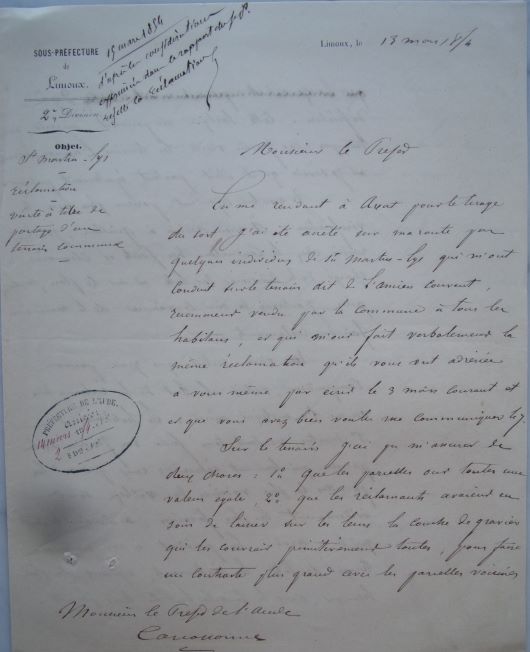 SOUS-PRÉFECTURE
de
Limoux.
2e Division
15 mars 1854
d'après les considérations
exprimées dans le rapport du s. P.
rejetté la réclamation
Limoux, le 13 mars 1854
Objet.
St Martin-Lys
réclamation
vente à titre de
partage d'un
terrain communal
Monsieur le Prefet
En me rendant à Axat pour le tirage
du sort j'ai été arrêté sur ma route par
quelques individus de St Martin-Lys qui m'ont
conduit sur le terrain dit de l'ancien couvent,
récemment vendu par la commune à tous les
habitans, et qui m'ont fait verbalement la
même réclamation qu'ils vous ont adressée
à vous même par écrit le 3 mars courant et
que vous avez bien voulu me communiquer le 7.
Sur le terrain j'ai pu m'assurer de
deux choses : 1o que les parcelles ont toutes une
valeur égale, 2o que les réclamants avaient eu
soin de laisser sur les leurs la couche de gravier
qui les couvrait primitivement toutes, pour faire
un contraste plus grand avec les parcelles voisines
PRÉFECTURE DE L'AUDE.
14 mars
2
Monsieur le Prefet de l'Aude
Carcassonne